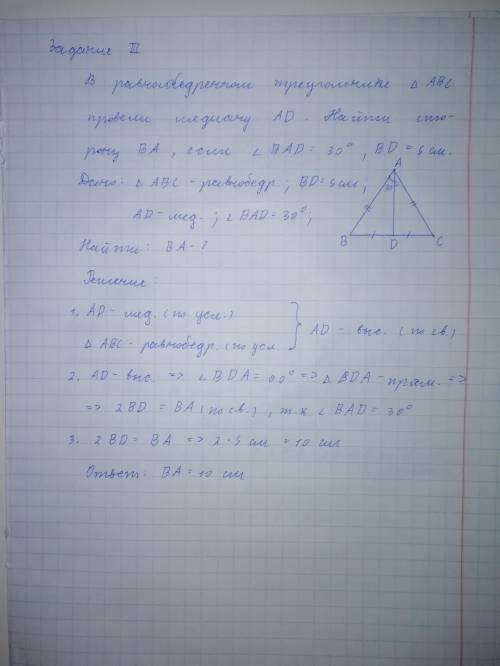 Задание III
В равнобедренном треугольнике △ ABC
провели медиану AD. Найти сто-
рону BA, если ∠ BAD = 30°, BD = 5 см.
Дано: △ ABC - равнобедр.; BD = 5 см;
AD - мед.; ∠ BAD = 30°;
Найти: BA - ?
A
30°
B D C
Решение:
1. AD - мед. (по усл.)
△ ABC - равнобедр. (по усл.
} AD - выс. (по св.)
2. AD - выс. => ∠ BDA = 90° => △ BDA - прям. =>
=> 2BD = BA (по св.), т.к ∠ BAD = 30°
3. 2BD = BA => 2·5 см = 10 см
Ответ: BA = 10 см